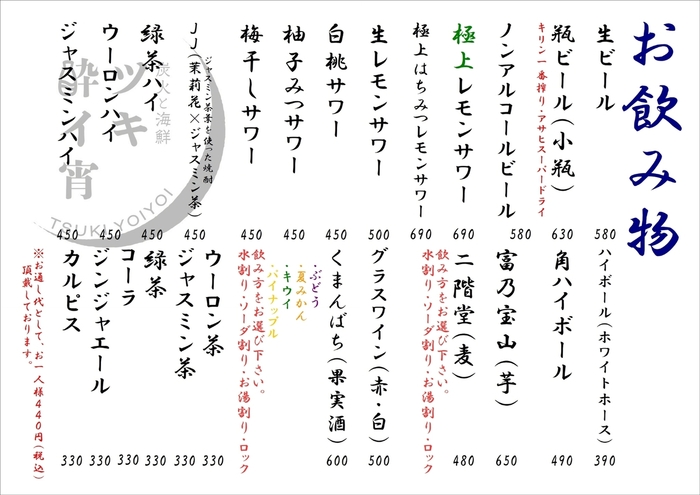 お飲み物
生ビール 580
瓶ビール(小瓶) 630
キリン一番搾り・アサヒスーパードライ
ノンアルコールビール 580
極上レモンサワー 690
極上はちみつレモンサワー 690
生レモンサワー 500
白桃サワー 450
柚子みつサワー 450
梅干しサワー 450
ジャスミン茶葉を使った焼酎
JJ(茉莉花×ジャスミン茶) 450
緑茶ハイ 450
ウーロンハイ 450
ジャスミンハイ 450
ハイボール(ホワイトホース) 390
角ハイボール 490
富乃宝山(芋) 650
二階堂(麦) 480
飲み方をお選び下さい。
水割り・ソーダ割り・お湯割り・ロック
グラスワイン(赤・白) 500
くまんばち(果実酒) 600
・ぶどう
・夏みかん
・キウイ
・パイナップル
飲み方をお選び下さい。
水割り・ソーダ割り・お湯割り・ロック
ウーロン茶 330
ジャスミン茶 330
緑茶 330
コーラ 330
ジンジャエール 330
カルピス 330
※お通し代として、お一人様440円(税込)
頂戴しております。
炭火と海鮮
ツキ
酔イ宵
TSUKI_YOIYOI